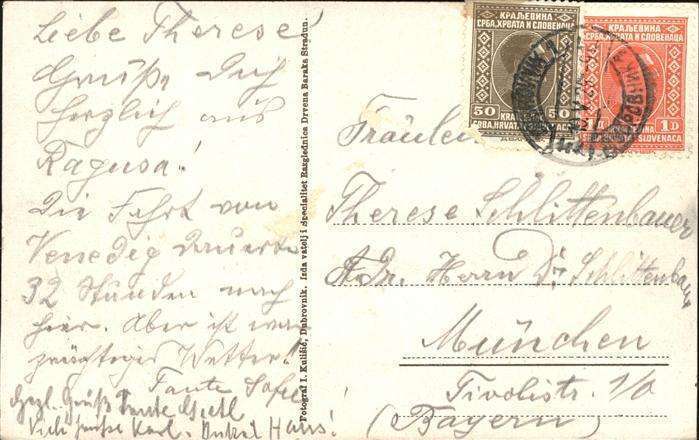 Liebe Therese!
Grüße Dich
herzlich aus
Ragusa!
Die Fahrt von
Venedig dauerte
32 Stunden nach
hier. Aber ist war
prächtiges Wetter!
Tante Sofie
Herzl. Grüße Tante
Viele Grüße Karl. Onkel Hans!
Fotograf I. Kulišić, Dubrovnik. Izda vatelj i specialitet Razglednica Drvena Baraka Stradun.
КРАЉЕВИНА
СРБА, ХРВАТА И СЛОВЕНАЦА
50 50
KRALJEVINA
SRBA, HRVATA
КРАЉЕВИНА
СРБА, ХРВАТА И СЛОВЕНАЦА
1 D 1 D
KRALJEVINA
SRBA, HRVATA I SLOVENACA
Fräulein
Therese Schlittenbauer
A. Dr. Herrn Dr. Schlittenbauer
München
Tivolistr. 1/0
(Bayern)